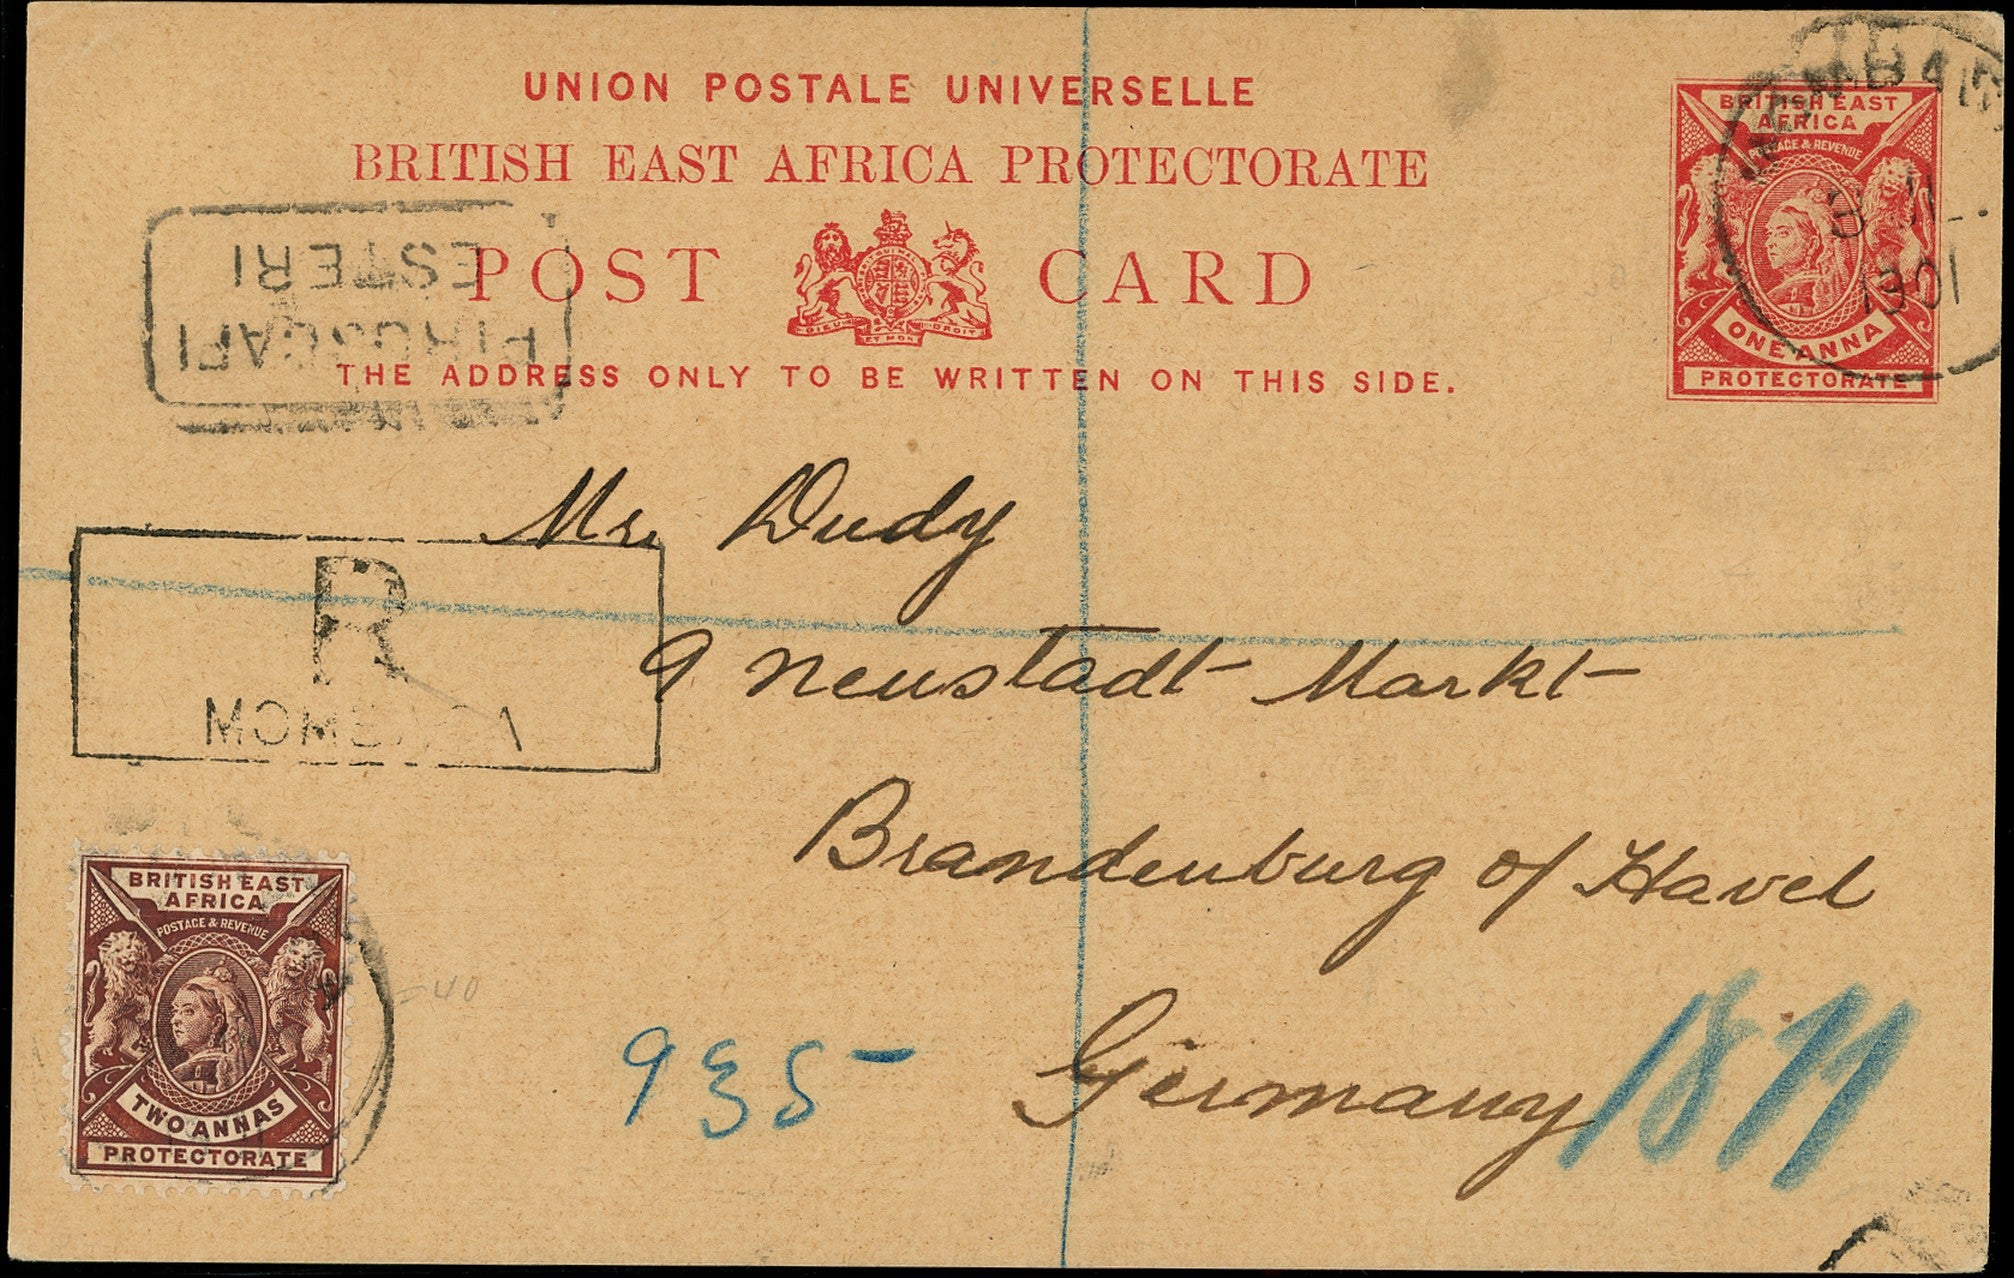 UNION POSTALE UNIVERSELLE
BRITISH EAST AFRICA PROTECTORATE
POST CARD
DIEU ET MON DROIT
THE ADDRESS ONLY TO BE WRITTEN ON THIS SIDE.
BRITISH EAST
AFRICA
POSTAGE & REVENUE
ONE ANNA
PROTECTORATE
1901
PIROSCAFI
ESTERI
Mr. Dudy
R
MOMBASA
9 Neustadt Markt
Brandenburg o/ Havel
Germany
935
1877
=40
BRITISH EAST
AFRICA
POSTAGE & REVENUE
TWO ANNAS
PROTECTORATE